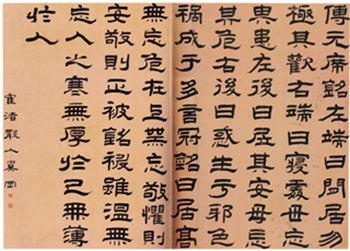 傅元席銘左端曰閒居勿
極其歡右端曰寢處毋忘
其患左後曰居其安毋忘
其危右後曰惑生于邪色
禍成于多言冠銘曰居高
無忘危在上無忘敬懼則
安敬則正被銘被雖溫無
忘人之寒無厚於己無薄
於人
散人